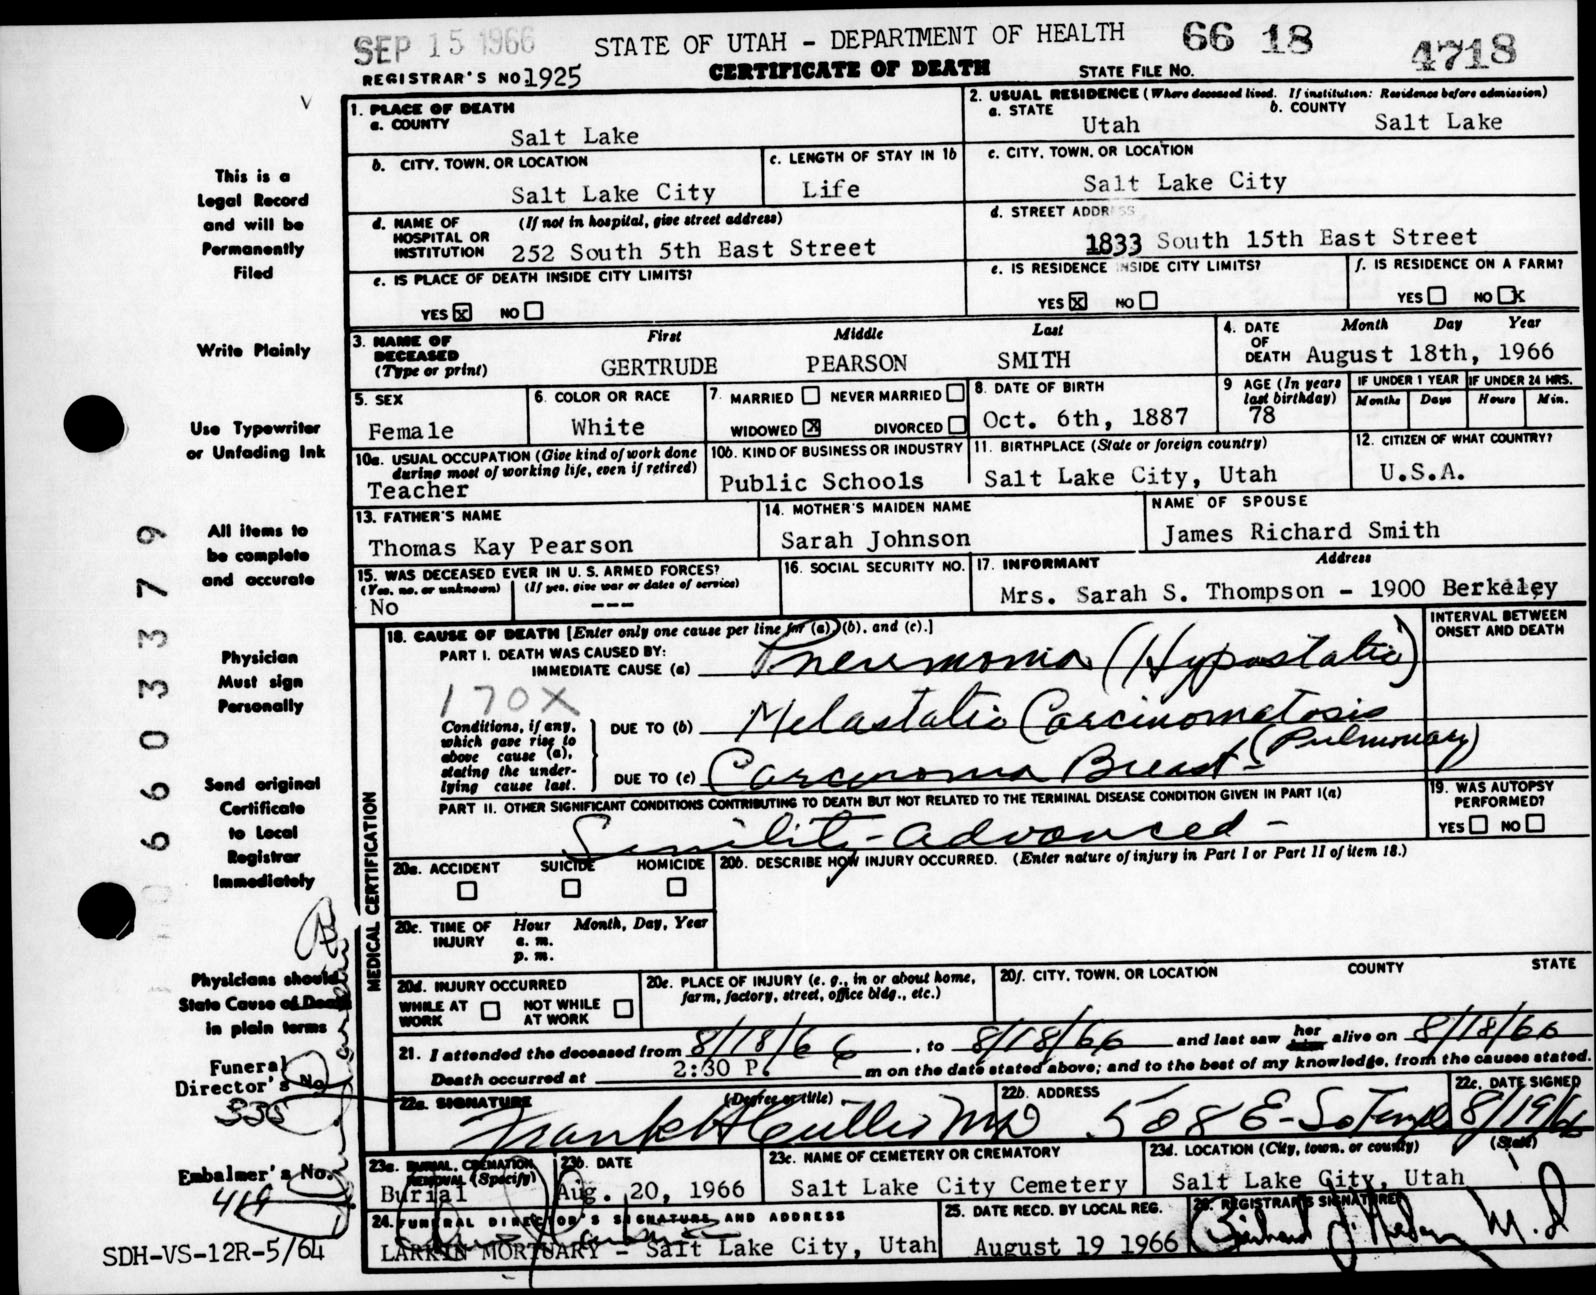 SEP 15 1966
STATE OF UTAH - DEPARTMENT OF HEALTH
66 18
4718
REGISTRAR'S NO. 1925
CERTIFICATE OF DEATH
STATE FILE NO.
V
This is a
Legal Record
and will be
Permanently
Filed
Write Plainly
Use Typewriter
or Unfading Ink
All items to
be complete
and accurate
Physician
Must sign
Personally
Send original
Certificate
to Local
Registrar
Immediately
Physicians should
State Cause of Death
in plain terms
Funeral
Director's No.
335
Embalmer's No.
419
SDH-VS-12R-5/64
6603379
1. PLACE OF DEATH
a. COUNTY
Salt Lake
2. USUAL RESIDENCE (Where deceased lived. If institution: Residence before admission)
a. STATE
Utah
b. COUNTY
Salt Lake
b. CITY, TOWN, OR LOCATION
Salt Lake City
c. LENGTH OF STAY IN 1b
Life
c. CITY, TOWN, OR LOCATION
Salt Lake City
d. NAME OF HOSPITAL OR INSTITUTION
(If not in hospital, give street address)
252 South 5th East Street
d. STREET ADDRESS
1833 South 15th East Street
e. IS PLACE OF DEATH INSIDE CITY LIMITS?
YES X NO
e. IS RESIDENCE INSIDE CITY LIMITS?
YES X NO
f. IS RESIDENCE ON A FARM?
YES NO X
3. NAME OF DECEASED (Type or print)
First Middle Last
GERTRUDE PEARSON SMITH
4. DATE OF DEATH
Month Day Year
August 18th, 1966
5. SEX
Female
6. COLOR OR RACE
White
7. MARRIED NEVER MARRIED
WIDOWED X DIVORCED
8. DATE OF BIRTH
Oct. 6th, 1887
9 AGE (In years last birthday)
78
IF UNDER 1 YEAR
Months Days
IF UNDER 24 HRS.
Hours Min.
10a. USUAL OCCUPATION (Give kind of work done during most of working life, even if retired)
Teacher
10b. KIND OF BUSINESS OR INDUSTRY
Public Schools
11. BIRTHPLACE (State or foreign country)
Salt Lake City, Utah
12. CITIZEN OF WHAT COUNTRY?
U.S.A.
13. FATHER'S NAME
Thomas Kay Pearson
14. MOTHER'S MAIDEN NAME
Sarah Johnson
NAME OF SPOUSE
James Richard Smith
15. WAS DECEASED EVER IN U. S. ARMED FORCES?
(Yes, no, or unknown) (If yes, give war or dates of service)
No ---
16. SOCIAL SECURITY NO.
17. INFORMANT Address
Mrs. Sarah S. Thompson - 1900 Berkeley
18. CAUSE OF DEATH [Enter only one cause per line for (a), (b), and (c).]
INTERVAL BETWEEN ONSET AND DEATH
PART I. DEATH WAS CAUSED BY:
IMMEDIATE CAUSE (a) Pneumonia (Hypostatic)
170X
Conditions, if any, which gave rise to above cause (a), stating the underlying cause last.
DUE TO (b) Metastatic Carcinomatosis
(Pulmonary)
DUE TO (c) Carcinoma Breast
PART II. OTHER SIGNIFICANT CONDITIONS CONTRIBUTING TO DEATH BUT NOT RELATED TO THE TERMINAL DISEASE CONDITION GIVEN IN PART I(a)
Senility - advanced -
19. WAS AUTOPSY PERFORMED?
YES NO
MEDICAL CERTIFICATION
20a. ACCIDENT SUICIDE HOMICIDE
20b. DESCRIBE HOW INJURY OCCURRED. (Enter nature of injury in Part I or Part II of item 18.)
20c. TIME OF INJURY
Hour Month, Day, Year
a. m.
p. m.
20d. INJURY OCCURRED
WHILE AT WORK NOT WHILE AT WORK
20e. PLACE OF INJURY (e. g., in or about home, farm, factory, street, office bldg., etc.)
20f. CITY, TOWN, OR LOCATION COUNTY STATE
21. I attended the deceased from 8/18/66, to 8/18/66 and last saw her him alive on 8/18/66
Death occurred at 2:30 P. m on the date stated above; and to the best of my knowledge, from the causes stated.
22a. SIGNATURE (Degree or title)
Frank H MD
22b. ADDRESS
508 E- So Temple
22c. DATE SIGNED
8/19/66
23a. BURIAL, CREMATION, REMOVAL (Specify)
Burial
23b. DATE
Aug. 20, 1966
23c. NAME OF CEMETERY OR CREMATORY
Salt Lake City Cemetery
23d. LOCATION (City, town, or county) (State)
Salt Lake City, Utah
24. FUNERAL DIRECTOR'S SIGNATURE AND ADDRESS
LARKIN MORTUARY - Salt Lake City, Utah
25. DATE RECD. BY LOCAL REG.
August 19 1966
26. REGISTRAR'S SIGNATURE
M.D